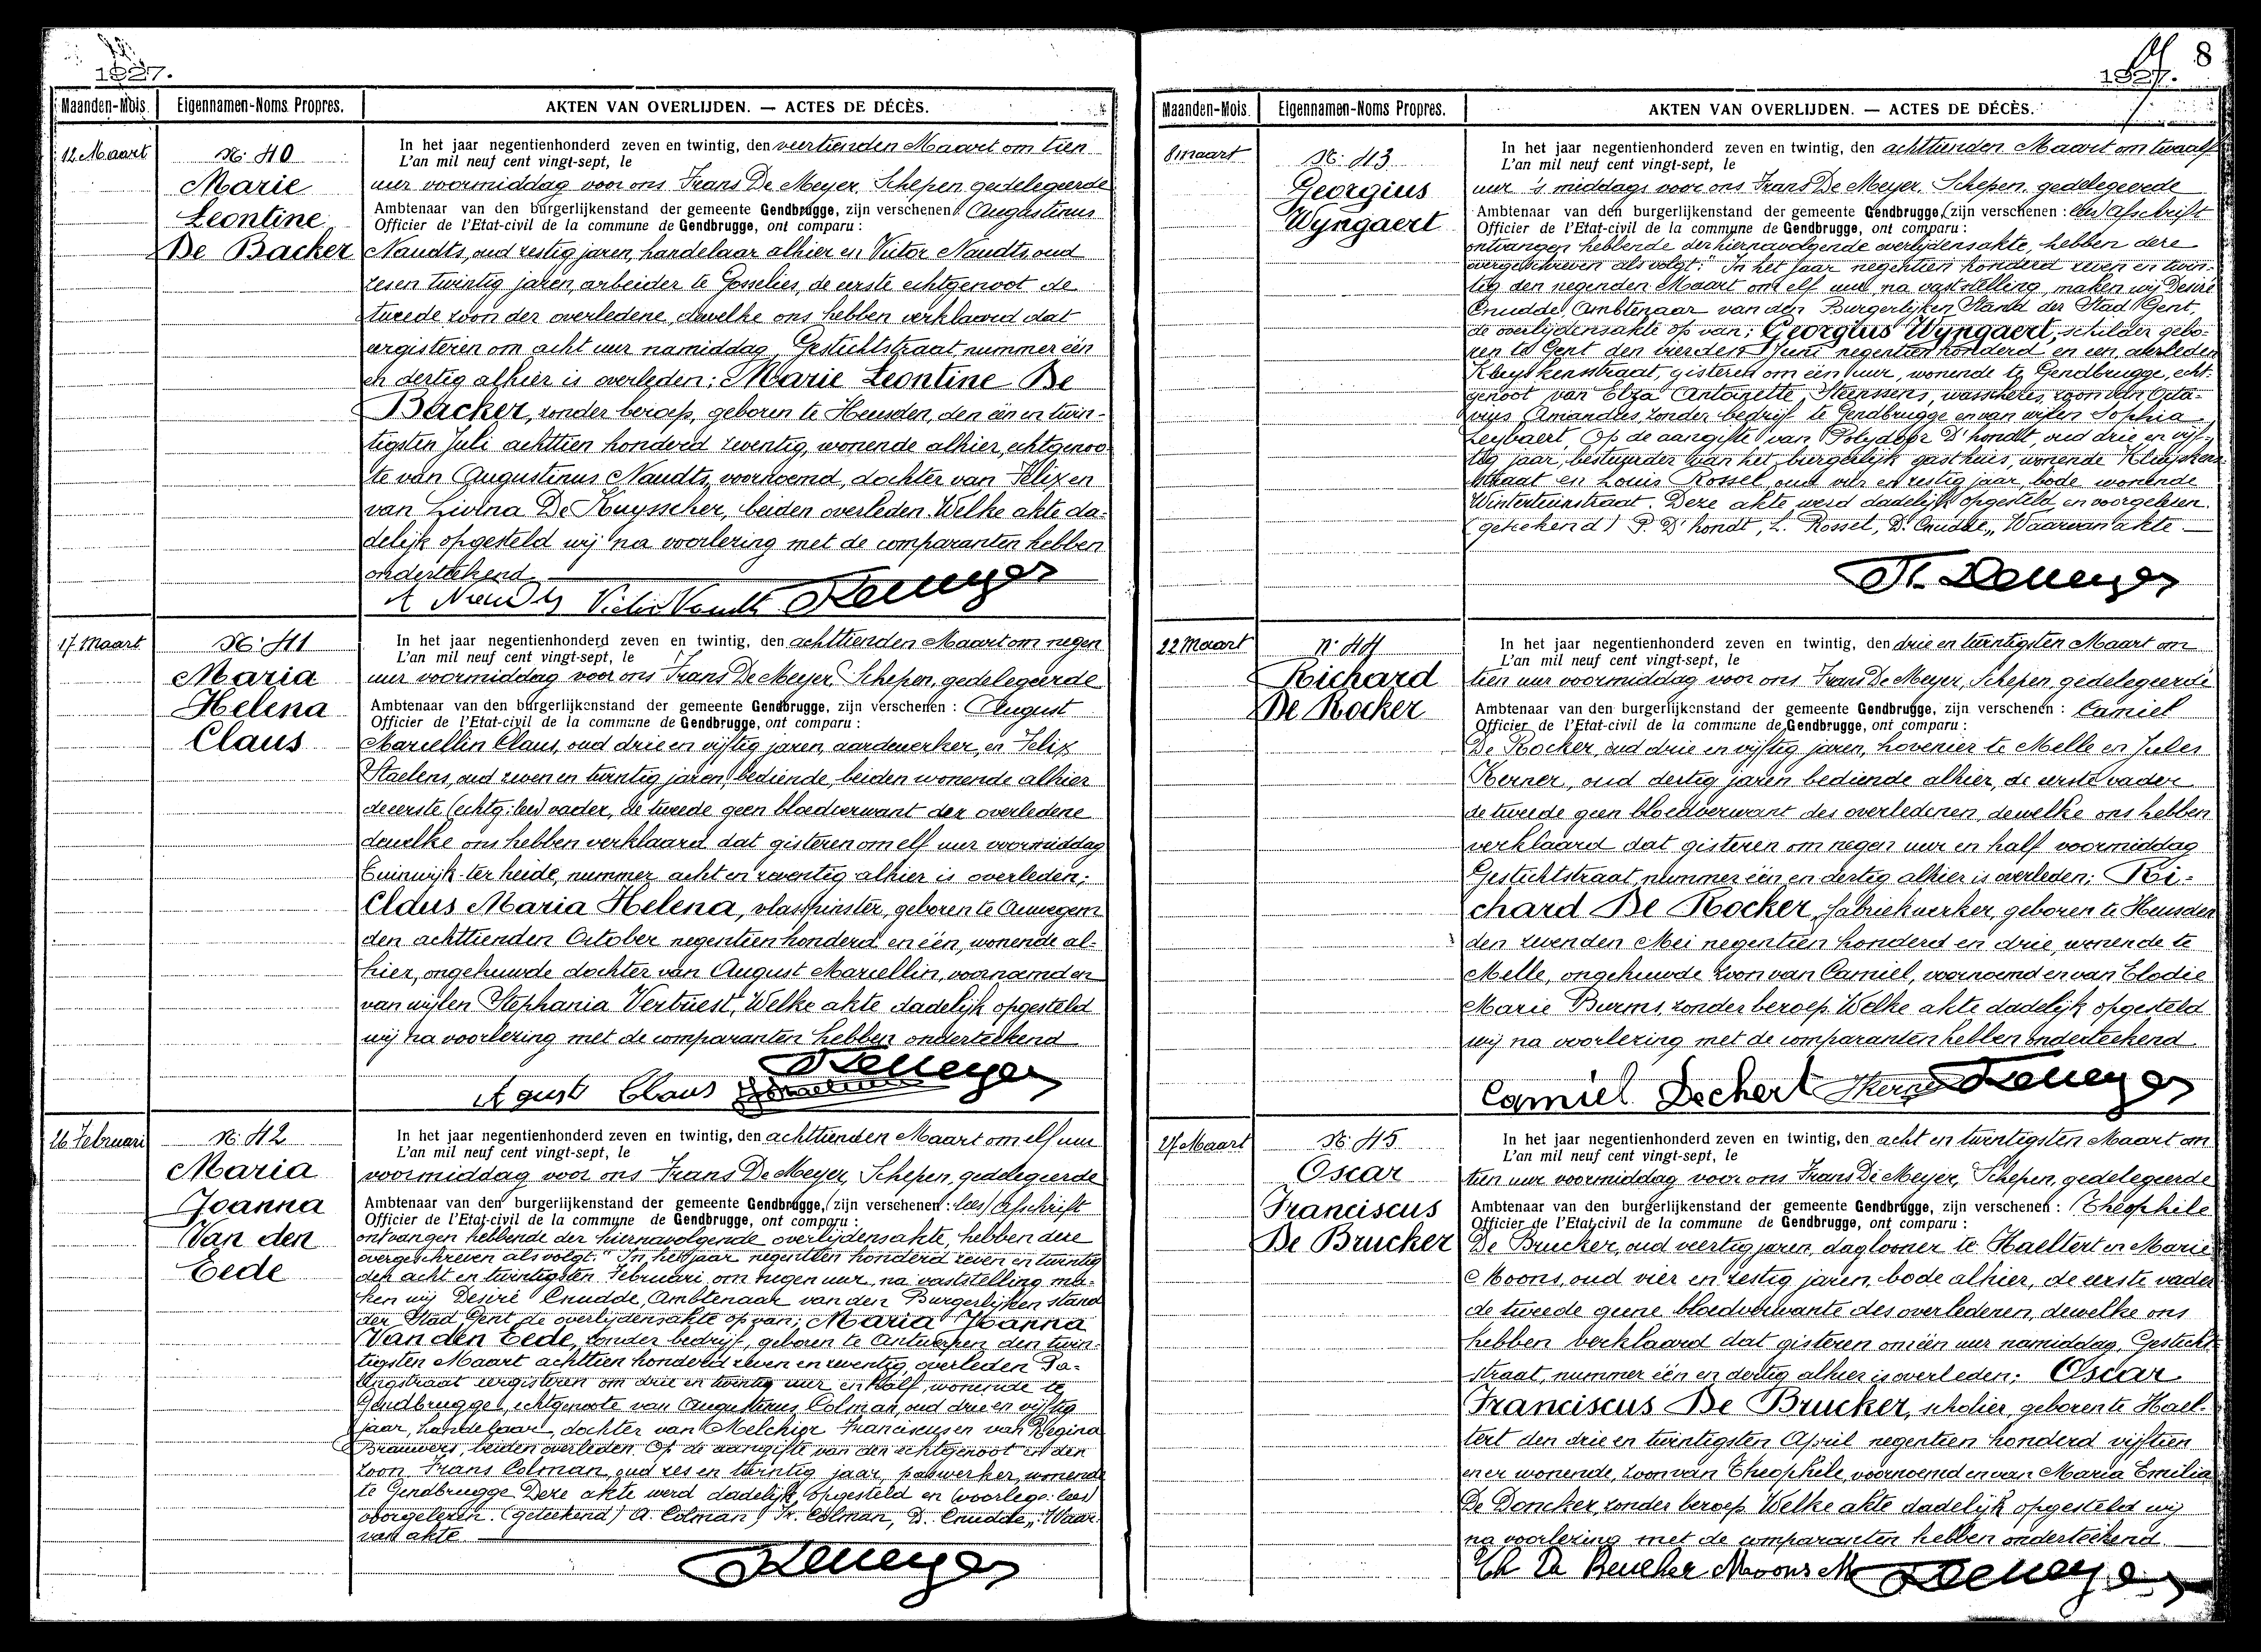 1927.
Maanden-Mois. Eigennamen-Noms Propres. AKTEN VAN OVERLIJDEN. — ACTES DE DÉCÈS.
12 Maart
N: 40
Marie
Leontine
De Backer
In het jaar negentienhonderd zeven en twintig, den veertienden Maart om tien
L'an mil neuf cent vingt-sept, le
uur voormiddag voor ons Frans De Meyer, Schepen, gedelegeerde
Ambtenaar van den burgerlijkenstand der gemeente Gendbrugge, zijn verschenen: Augustinus
Officier de l'Etat-civil de la commune de Gendbrugge, ont comparu :
Naudts, oud zestig jaren, handelaar alhier en Victor Naudts, oud
zesen twintig jaren, arbeider te Gosselies, de eerste echtgenoot de
tweede zoon der overledene, dewelke ons hebben verklaard dat
eergisteren om acht uur namiddag, Gestichtstraat nummer één
en dertig alhier is overleden: Marie Leontine De
Backer, zonder beroep, geboren te Heusden, den één en twin-
tigsten Juli achttien honderd zeventig, wonende alhier, echtgenoo-
te van Augustinus Naudts, voornoemd, dochter van Felix en
van Livina De Kuysscher, beiden overleden. Welke akte da-
delijk opgesteld wij na voorlezing met de comparanten hebben
onderteekend
A Naudts Victor Naudts Demeyer
17 Maart
N: 41
Maria
Helena
Claus
In het jaar negentienhonderd zeven en twintig, den achttienden Maart om negen
L'an mil neuf cent vingt-sept, le
uur voormiddag voor ons Frans De Meyer, Schepen, gedelegeerde
Ambtenaar van den burgerlijkenstand der gemeente Gendbrugge, zijn verschenen : August
Officier de l'Etat-civil de la commune de Gendbrugge, ont comparu :
Marcellin Claus, oud drie en vijftig jaren, aardewerker, en Felix
Staelens, oud zeven en twintig jaren, bediende, beiden wonende alhier
de eerste (echtg: lees) vader, de tweede geen bloedverwant der overledene
dewelke ons hebben verklaard dat gisteren om elf uur voormiddag
Tuinwijk ter heide, nummer acht en zeventig alhier is overleden;
Claus Maria Helena, vlasspinster, geboren te Auwegem
den achttienden October negentien honderd en één, wonende al-
hier, ongehuwde dochter van August Marcellin, voornoemd en
van wijlen Stephania Verbuest, Welke akte dadelijk opgesteld
wij na voorlezing met de comparanten hebben onderteekend
Demeyer
Agust Claus
26 Februari
N: 42
Maria
Joanna
Van den
Eede
In het jaar negentienhonderd zeven en twintig, den achttienden Maart om elf uur
L'an mil neuf cent vingt-sept, le
voormiddag voor ons Frans De Meyer, Schepen, gedelegeerde
Ambtenaar van den burgerlijkenstand der gemeente Gendbrugge, (zijn verschenen: lees) Afschrift
Officier de l'Etat-civil de la commune de Gendbrugge, ont comparu :
ontvangen hebbende der hiernavolgende overlijdensakte, hebben deze
overgeschreven als volgt: "In het jaar negentien honderd zeven en twintig
den acht en twintigsten Februari om negen uur, na vaststelling ma-
ken wij Desiré Cnudde, Ambtenaar van den Burgerlijken stand
der Stad Gent de overlijdensakte op van; Maria Joanna
Van den Eede, zonder bedrijf, geboren te Antwerpen den twin-
tigsten Maart achttien honderd zeven en zeventig, overleden Pa-
eergisteren om drie en twintig uur en half, wonende te
Gendbrugge, echtgenote van Augustinus Colman, oud drie en vijftig
jaar, handelaar, dochter van Melchior Franciscus en van Regina
Brauwers, beiden overleden. Op de aangifte van den echtgenoot en den
zoon Frans Colman, oud zes en twintig jaar, paswerker, wonende
te Gendbrugge Deze akte werd dadelijk, opgesteld en (voorlege: lees)
voorgelezen. (geteekend) A. Colman, Fr. Colman, D. Cnudde,, Waar-
van akte
Demeyer
8
1927.
Maanden-Mois. Eigennamen-Noms Propres. AKTEN VAN OVERLIJDEN. — ACTES DE DÉCÈS.
8 maart
N: 43
Georgius
Wyngaert
In het jaar negentienhonderd zeven en twintig, den achttienden Maart om twaalf
L'an mil neuf cent vingt-sept, le
uur 's middags voor ons Frans De Meyer, Schepen, gedelegeerde
Ambtenaar van den burgerlijkenstand der gemeente Gendbrugge, (zijn verschenen : lees) Afschrift
Officier de l'Etat-civil de la commune de Gendbrugge, ont comparu :
ontvangen hebbende der hiernavolgende overlijdensakte, hebben deze
overgeschreven als volgt: "In het jaar negentien honderd zeven en twin-
tig den negenden Maart om elf uur, na vaststelling maken wij Desiré
Cnudde, Ambtenaar van den Burgerlijken Stand der Stad Gent,
de overlijdensakte op van; Georgius Wyngaert, schilder gebo-
ren te Gent den vierden Juni negentien honderd en een, overleden
Kluyskensstraat, gisteren om één uur, wonende te Gendbrugge, echt-
genoot van Elza Antoinette Steenssens, wasscheres, zoon van Octa-
vius Amandus, zonder bedrijf te Gendbrugge en van wijlen Sophia
Leybaert, Op de aangifte van Polydoor D'hondt, oud drie en vijf-
tig jaar, bestuurder van het burgerlijk gasthuis, wonende Kluyskens-
straat en Louis Rossel, oud vier en zestig jaar, bode, wonende
Winterteinstraat. Deze akte werd dadelijk opgesteld en voorgelezen.
(getekend) P. D'hondt, L. Rossel, D. Cnudde,, Waarvan akte
Fr. Demeyer
22 Maart
N: 44
Richard
De Rocker
In het jaar negentienhonderd zeven en twintig, den drie en twintigsten Maart om
L'an mil neuf cent vingt-sept, le
tien uur voormiddag voor ons Frans De Meyer, Schepen, gedelegeerde
Ambtenaar van den burgerlijkenstand der gemeente Gendbrugge, zijn verschenen : Camiel
Officier de l'Etat-civil de la commune de Gendbrugge, ont comparu :
De Rocker, oud drie en vijftig jaren, hovenier te Melle en Jules
Kerner, oud dertig jaren bediende alhier, de eerste vader
de tweede geen bloedverwant des overledenen, dewelke ons hebben
verklaard dat gisteren om negen uur en half voormiddag
Gestichtstraat, nummer één en dertig alhier is overleden; Ri-
chard De Rocker, fabriekwerker, geboren te Heusden
den zevenden Mei negentien honderd en drie, wonende te
Melle, ongehuwde zoon van Camiel, voornoemd en van Elodie
Marie Burms, zonder beroep. Welke akte dadelijk opgesteld
wij na voorlezing met de comparanten hebben onderteekend
Camiel Dechert Demeyer
27 Maart
N: 45
Oscar
Franciscus
De Brucker
In het jaar negentienhonderd zeven en twintig, den acht en twintigsten Maart om
L'an mil neuf cent vingt-sept, le
tien uur voormiddag voor ons Frans De Meyer, Schepen, gedelegeerde
Ambtenaar van den burgerlijkenstand der gemeente Gendbrugge, zijn verschenen : Theophile
Officier de l'Etat-civil de la commune de Gendbrugge, ont comparu :
De Brucker, oud veertig jaren, daglooner te Haeltert en Marie
Moons, oud vier en zestig jaren, bode alhier, de eerste vader
de tweede geene bloedverwante des overledenen, dewelke ons
hebben verklaard dat gisteren om één uur namiddag, Gesticht-
straat, nummer één en dertig alhier is overleden; Oscar
Franciscus De Brucker, scholier, geboren te Hael-
tert den drie en twintigsten April negentien honderd vijftien
en er wonende, zoon van Theophile, voornoemd en van Maria Emilia
De Doncker, zonder beroep. Welke akte dadelijk opgesteld wij
na voorlezing met de comparanten hebben onderteekend
Th De Brucker Moons M Demeyer